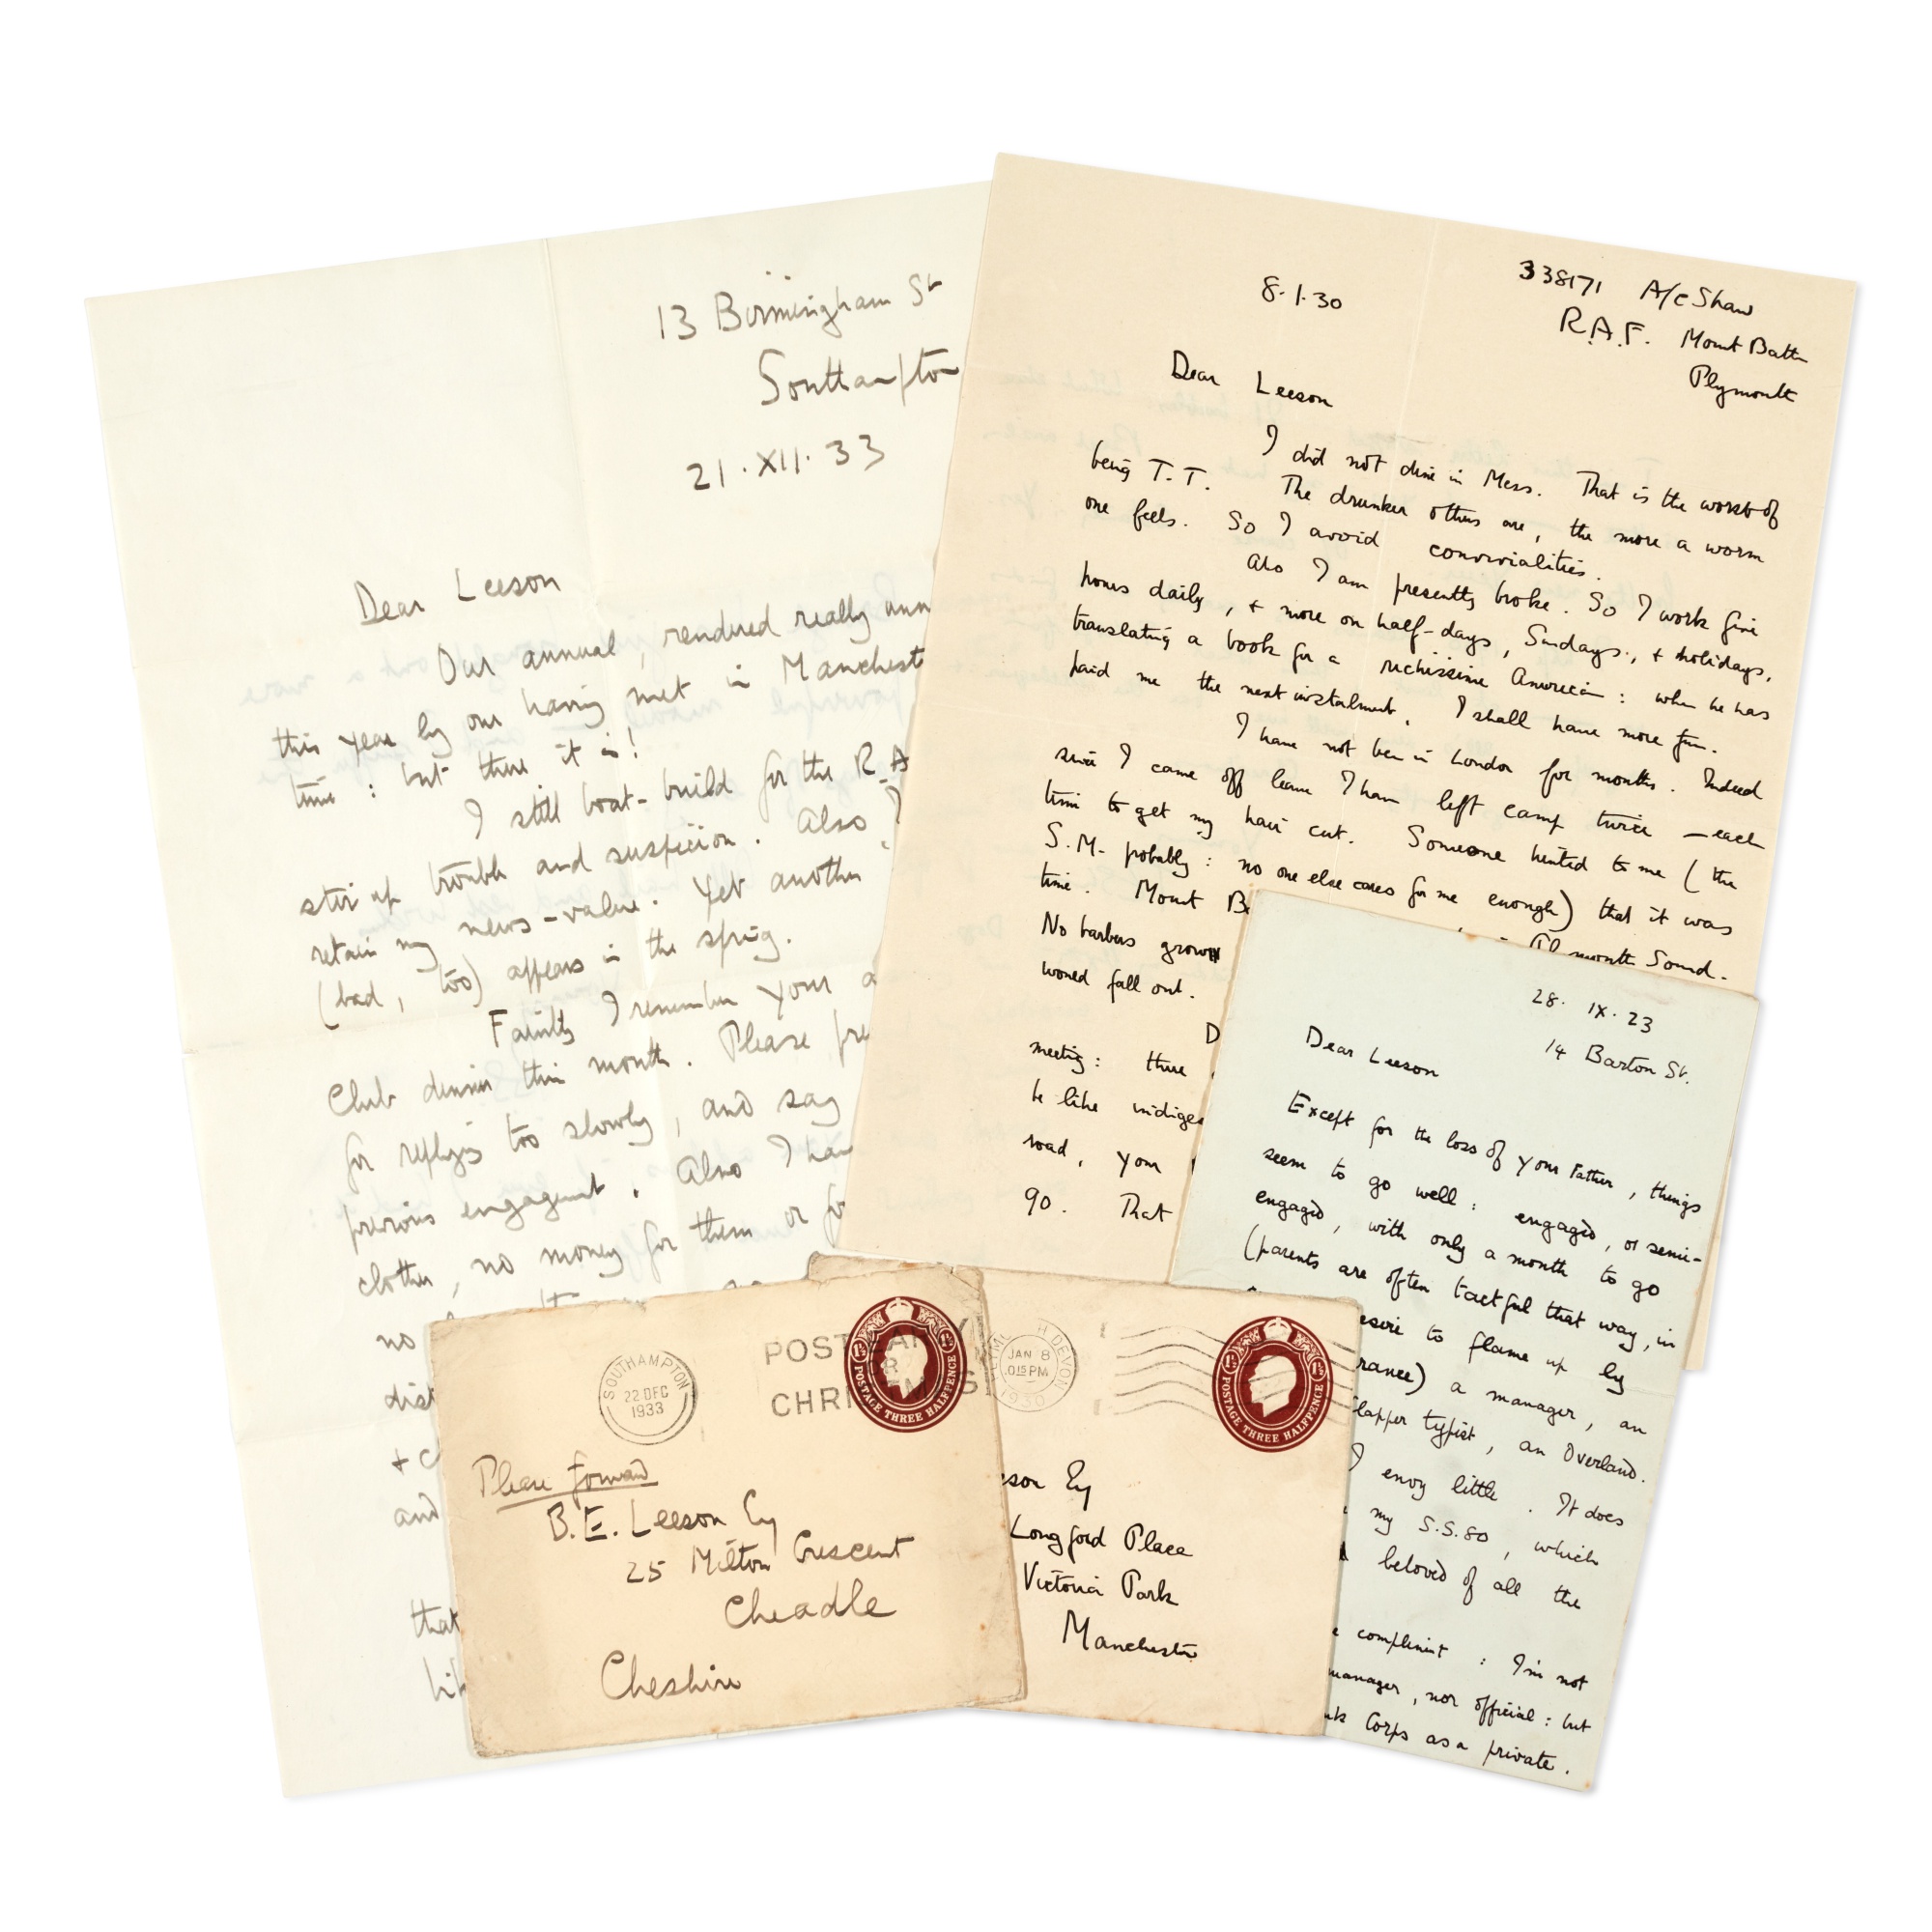 13 Birmingham St
Southampton
21.XII.33
Dear Leeson
Our annual, rendered really
this year by our having met in Manchest
time: but there it is!
I still boat-build for the R.A
stir up trouble and suspicion. Also I
retain my news-value. Yet another
(bad, too) appears in the spring.
Faintly I remember your a
Club dinner this month. Please pre
for replying too slowly, and say
previous engagement. Also I have
clothes, no money for them or for
no
dist
+ c
and
that
lik
338171 A/c Shaw
8.1.30
R.A.F. Mount Batten
Plymouth
Dear Leeson
I did not dine in Mess. That is the worst of
being T.T. The drunker others are, the more a worm
one feels. So I avoid convivialities.
Also I am presently broke. So I work five
hours daily, + more on half-days, Sundays, + holidays,
translating a book for a richissime American: when he has
paid me the next instalment, I shall have more fun.
I have not been in London for months. Indeed
since I came off leave I have left camp twice — each
time to get my hair cut. Someone hinted to me (the
S.M. probably: no one else cares for me enough) that it was
time. Mount B Plymouth Sound.
No barbers grown
would fall out.
D
meeting: there
be like indiges
road, your
90. That
28.IX.23
14 Barton St.
Dear Leeson
Except for the loss of your Father, things
seem to go well: engaged, or semi-
engaged, with only a month to go
(parents are often tactful that way, in
esire to flame up by
rance) a manager, an
lapper typist, an Overland.
I envy little. It does
my S.S.80, which
beloved of all the
compliment: I'm not
manager, nor official: but
nk Corps as a private.
SOUTHAMPTON
22 DEC
1933
POST EARLY
FOR
CHRISTMAS
POSTAGE THREE HALFPENCE
Please forward
B.E. Leeson Esq
25 Milton Crescent
Cheadle
Cheshire
H DEVON
JAN 8
015 PM
1930
POSTAGE THREE HALFPENCE
son Esq
Longford Place
Victoria Park
Manchester